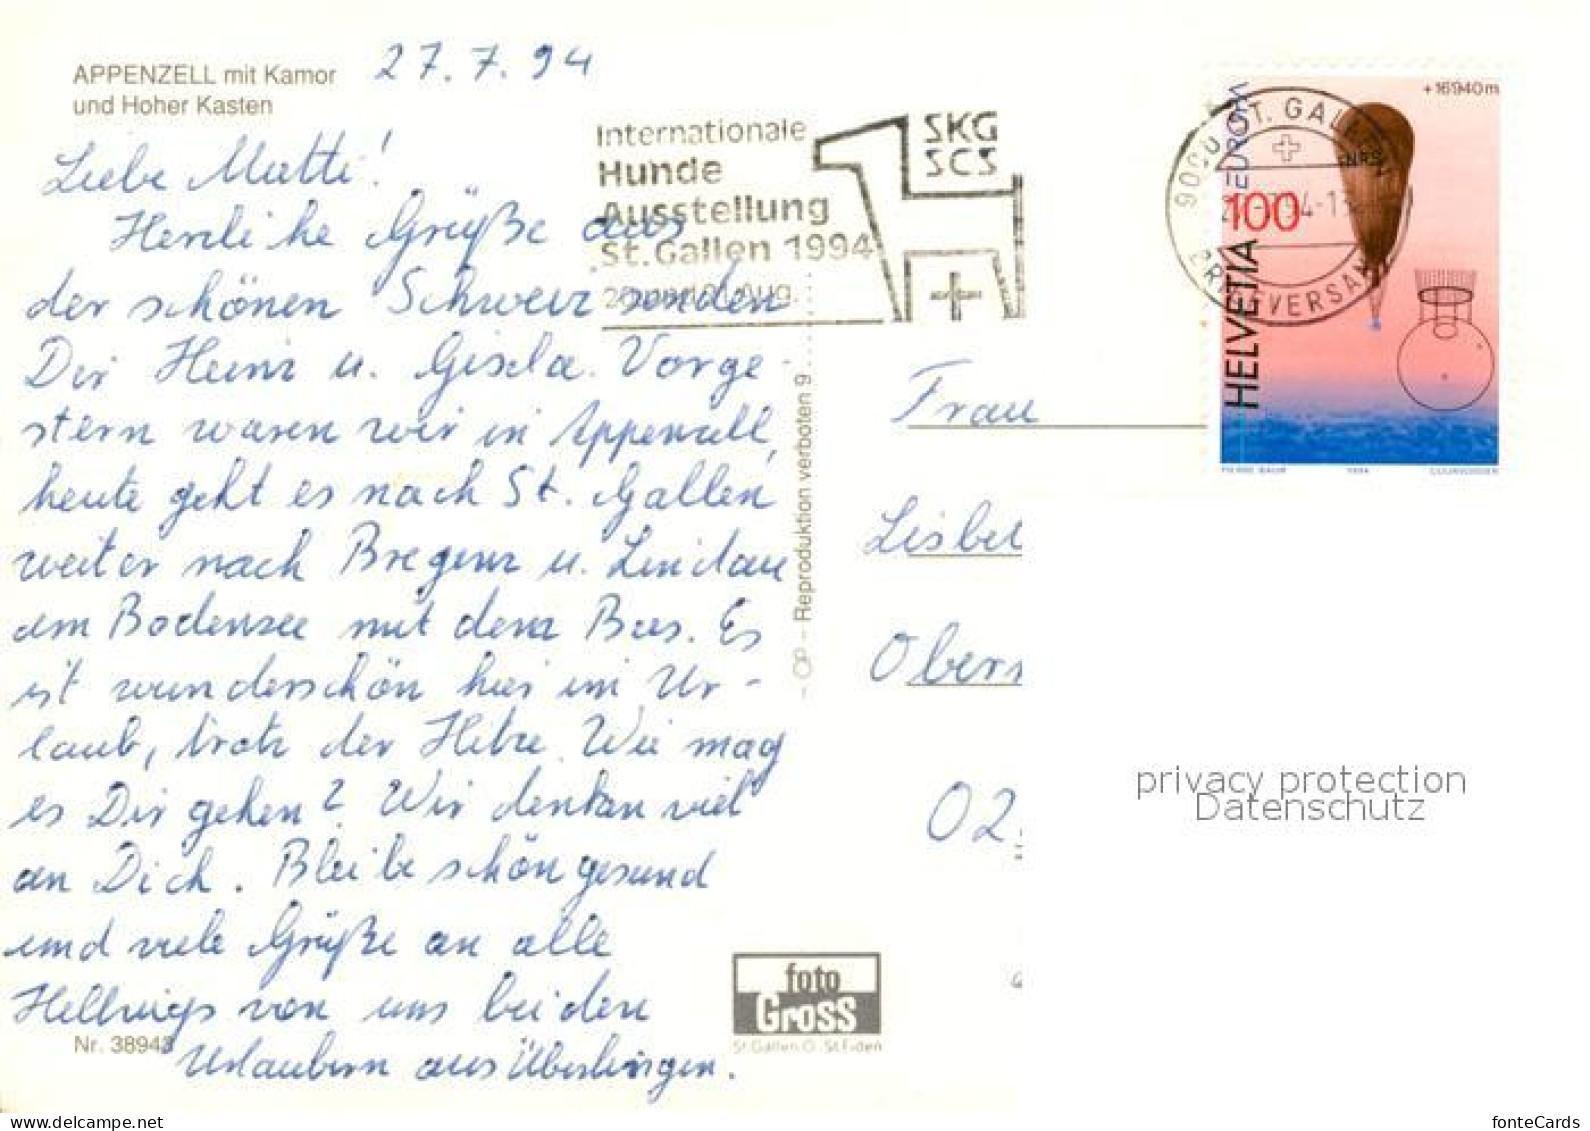 APPENZELL mit Kamor
und Hoher Kasten
27.7.94
Liebe Mutti!
Herzliche Grüße aus
der schönen Schweiz senden
Dir Heinz u. Gisela. Vorge-
stern waren wir in Appenzell,
heute geht es nach St. Gallen
weiter nach Bregenz u. Lindau
am Bodensee mit dem Bus. Es
ist wunderschön hier im Ur-
laub, trotz der Hitze. Wie mag
es Dir gehen? Wir denken viel
an Dich. Bleibe schön gesund
und viele Grüße an alle
Hellwigs von uns beiden
Urlaubern aus Überlingen.
Nr. 38943
Internationale
Hunde
Ausstellung
St. Gallen 1994
Aug.
SKG
SCS
- Reproduktion verboten 9
foto
Gross
St. Gallen O. - St. Fiden
Frau
Lisbet
Obers
02
9000 ST. GALLEN
BRIEFVERSAND
+16940m
EUROPA
100
HELVETIA
NRS
1994
COURVOISIER
privacy protection
Datenschutz
www.delcampe.net
fonteCards